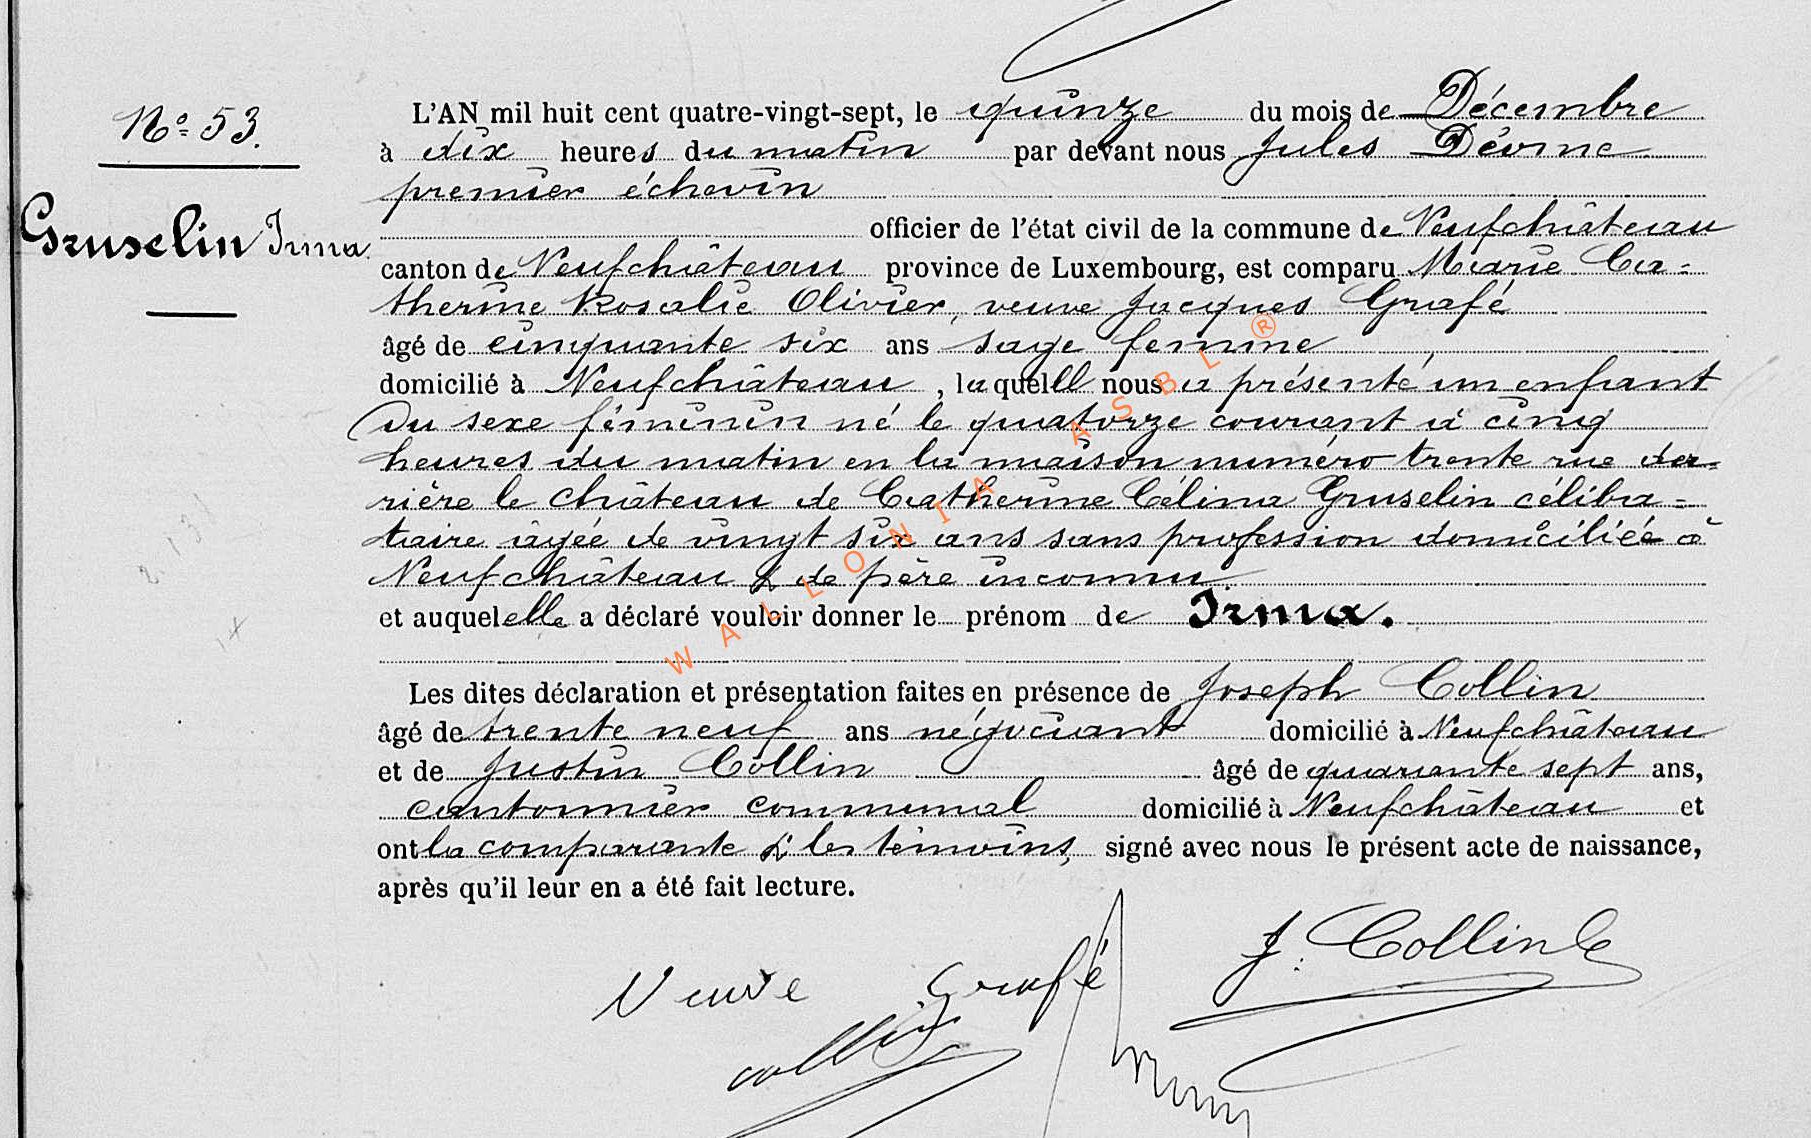 N° 53.
Gruselin Irma.
L'AN mil huit cent quatre-vingt-sept, le quinze du mois de Décembre
à dix heures du matin par devant nous Jules
premier échevin
officier de l'état civil de la commune de Neufchâteau
canton de Neufchâteau province de Luxembourg, est comparu Marie Ca=
therine Rosalie Olivier, veuve Jacques Grafé
âgé de cinquante six ans sage femme
domicilié à Neufchâteau, laquelle nous a présenté un enfant
du sexe féminin né le quatorze courant à cinq
heures du matin en la maison numéro trente rue der=
rière le château de Catherine Célina Gruselin céliba=
taire âgée de vingt six ans sans profession domiciliée à
Neufchâteau & de père inconnu.
et auquel elle a déclaré vouloir donner le prénom de Irma.
Les dites déclaration et présentation faites en présence de Joseph Collin
âgé de trente neuf ans négociant domicilié à Neufchâteau
et de Justin Collin âgé de quarante sept ans,
cantonnier communal domicilié à Neufchâteau et
ont la comparante & les témoins, signé avec nous le présent acte de naissance,
après qu'il leur en a été fait lecture.
J. Collin
Veuve Grafé
collin
WALLONIA ASBL ®